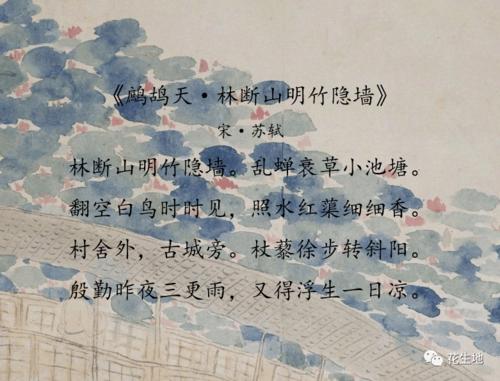 《鹧鸪天·林断山明竹隐墙》
宋·苏轼
林断山明竹隐墙。乱蝉衰草小池塘。
翻空白鸟时时见，照水红蕖细细香。
村舍外，古城旁。杖藜徐步转斜阳。
殷勤昨夜三更雨，又得浮生一日凉。
花生地